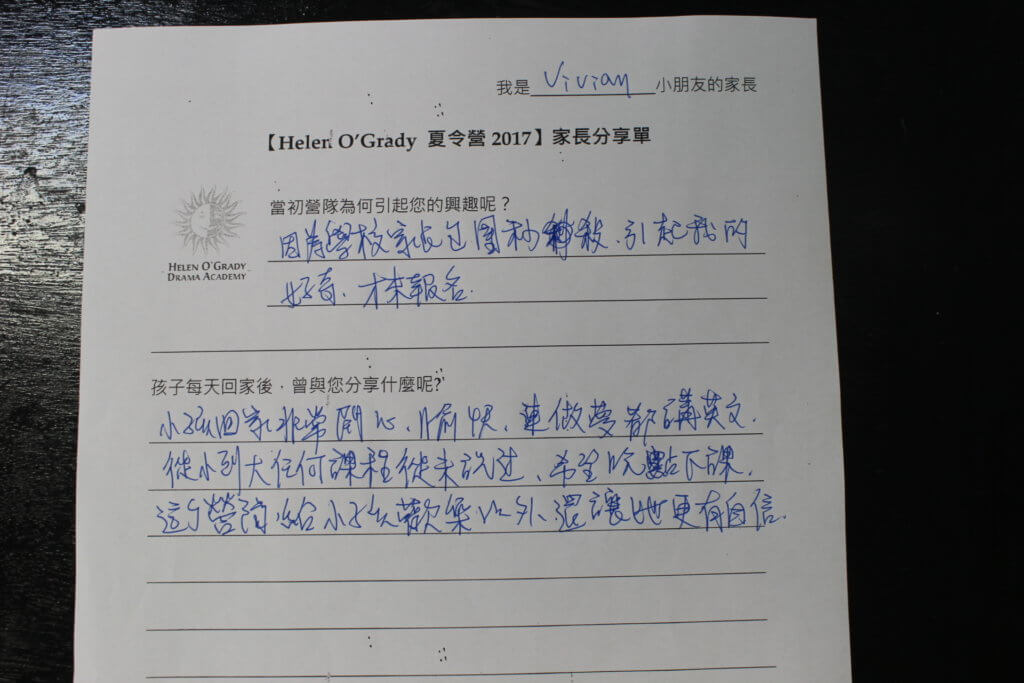 我是 Vivian 小朋友的家長
【Helen O'Grady 夏令營 2017】家長分享單
當初營隊為何引起您的興趣呢？
HELEN O'GRADY
DRAMA ACADEMY
因為學校家長包團秒殺、引起我的
好奇、才來報名.
孩子每天回家後，曾與您分享什麼呢?
小孩回家非常開心、愉快、連做夢都講英文.
從小到大任何課程從未說过、希望晚點下課.
這个營隊、給小孩歡樂以外、還讓她更有自信.